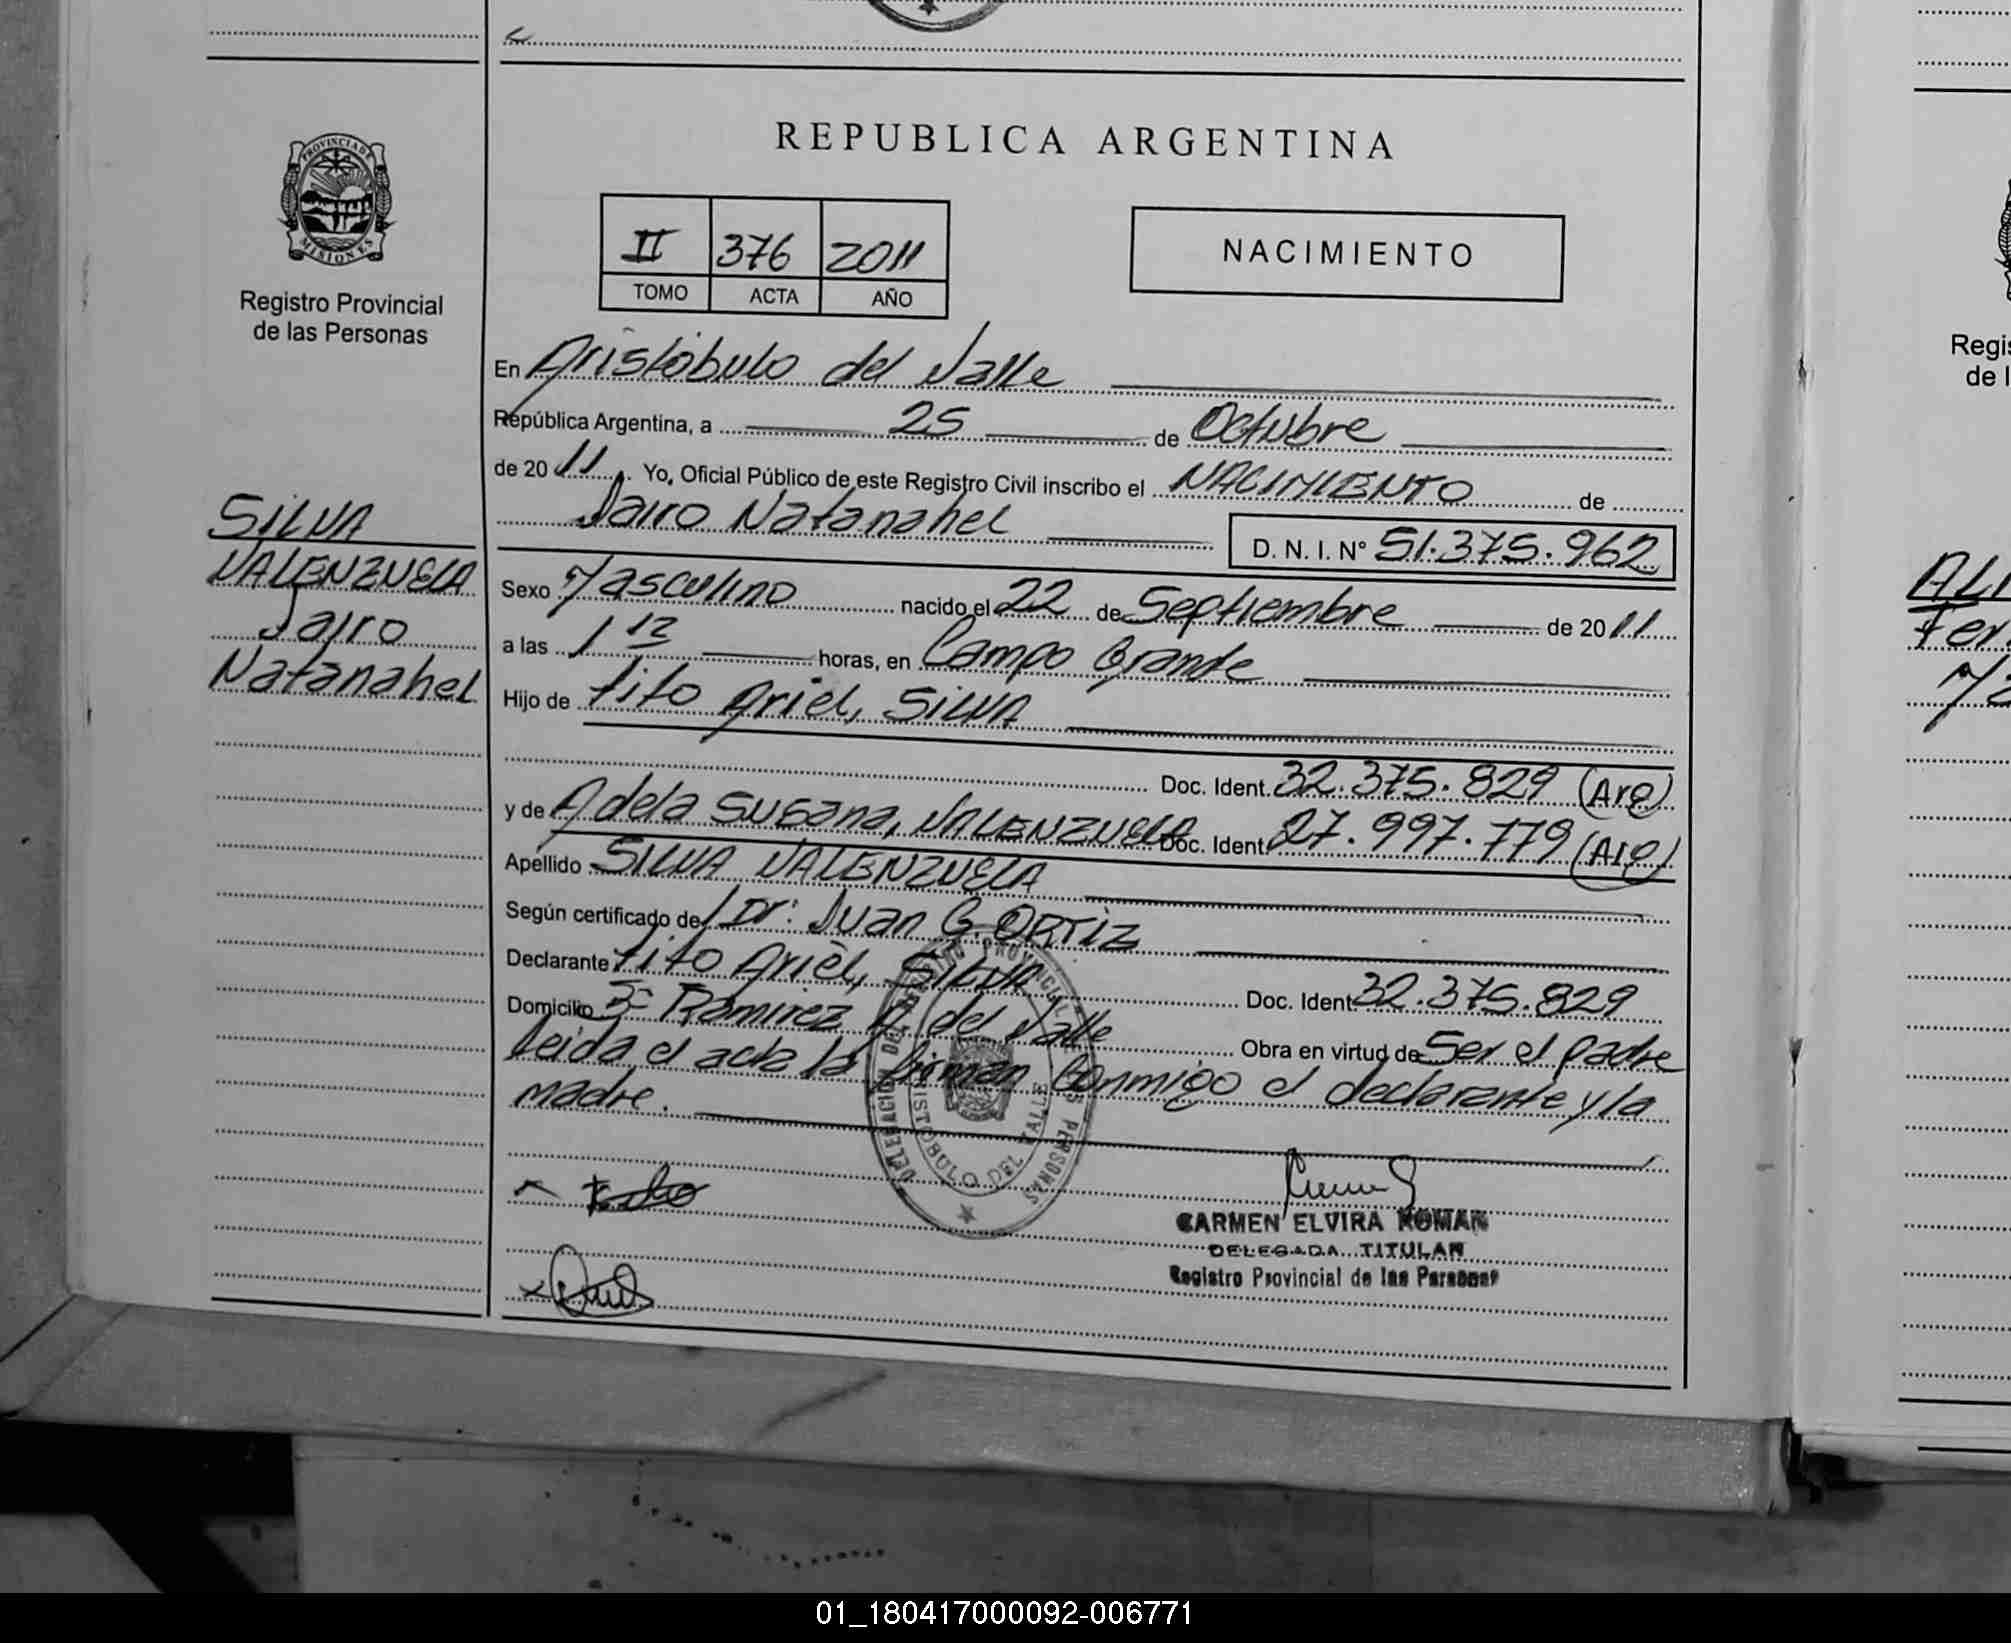 REPUBLICA ARGENTINA
PROVINCIA DE MISIONES
Registro Provincial
de las Personas
II 376 2011
TOMO ACTA AÑO
NACIMIENTO
En Aristóbulo del Valle
República Argentina, a 25 de Octubre
de 2011. Yo, Oficial Público de este Registro Civil inscribo el NACIMIENTO de
Jairo Natanahel D. N. I. N° 51.375.962
SILVA
VALENZUELA
Jairo
Natanahel
Sexo Masculino nacido el 22 de Septiembre de 2011
a las 1 12 horas, en Campo Grande
Hijo de Tito Ariel, SILVA
Doc. Ident. 32.375.829 (Arg)
y de Adela Susana, VALENZUELA Doc. Ident. 27.997.779 (Arg)
Apellido SILVA VALENZUELA
Según certificado de Dr: Juan G. ORTIZ
Declarante Tito Ariel, SILVA Doc. Ident. 32.375.829
Domicilio Bº Ramirez A. del Valle Obra en virtud de Ser el padre
Leida el acta la firman conmigo el declarante y la
madre.
DELEGACION DEL REGISTRO PROVINCIAL DE LAS PERSONAS
ARISTOBULO DEL VALLE
CARMEN ELVIRA ROMAN
DELEGADA TITULAR
Registro Provincial de las Personas
Regis
de l
ALI
Fer
01_180417000092-006771